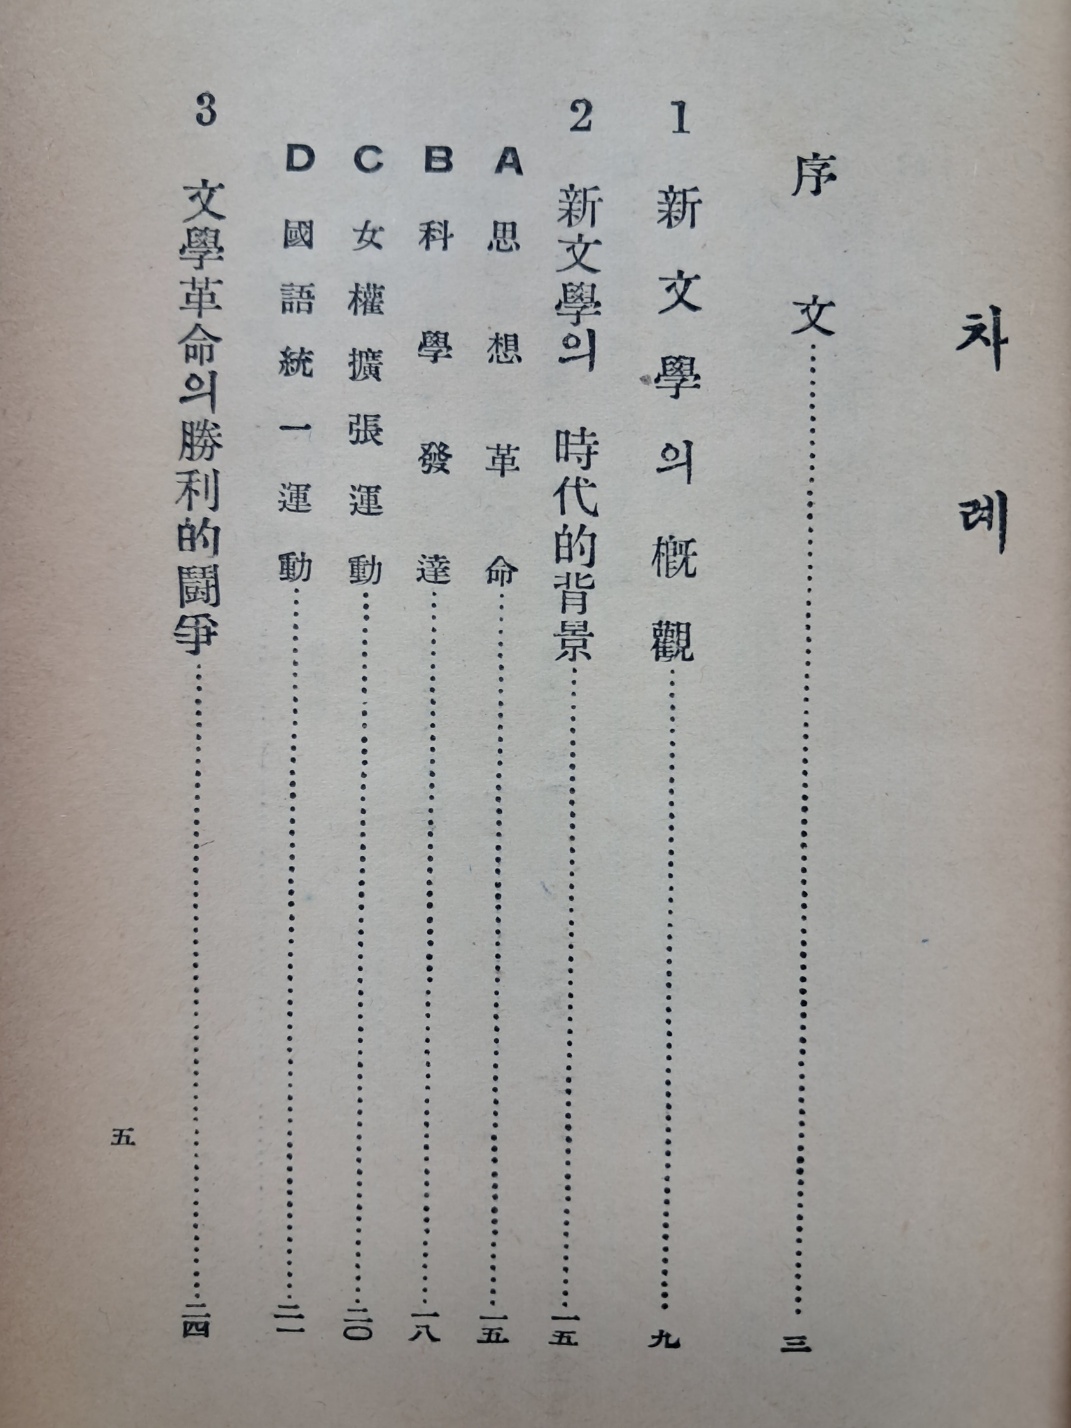 차례
序文……三
1 新文學의概觀……九
2 新文學의 時代的背景……一五
A 思想革命……一五
B 科學發達……一八
C 女權擴張運動……二〇
D 國語統一運動……二一
3 文學革命의勝利的鬪爭……二四
五